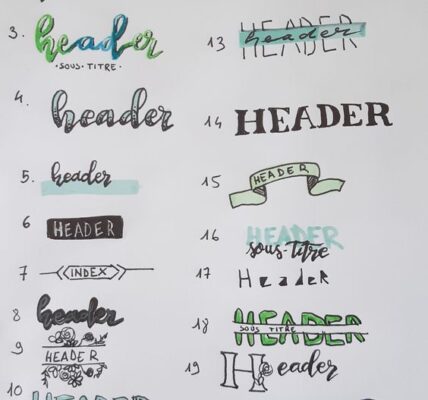 3. header
·SOUS·TITRE·
4. header
5. header
6 HEADER
7 INDEX
8 header
9 HEADER
10 HEADER
13 HEADER
header
14 HEADER
15 HEADER
16 HEADER
sous-titre
17 HeadeR
18 HEADER
SOUS TITRE
19 Header